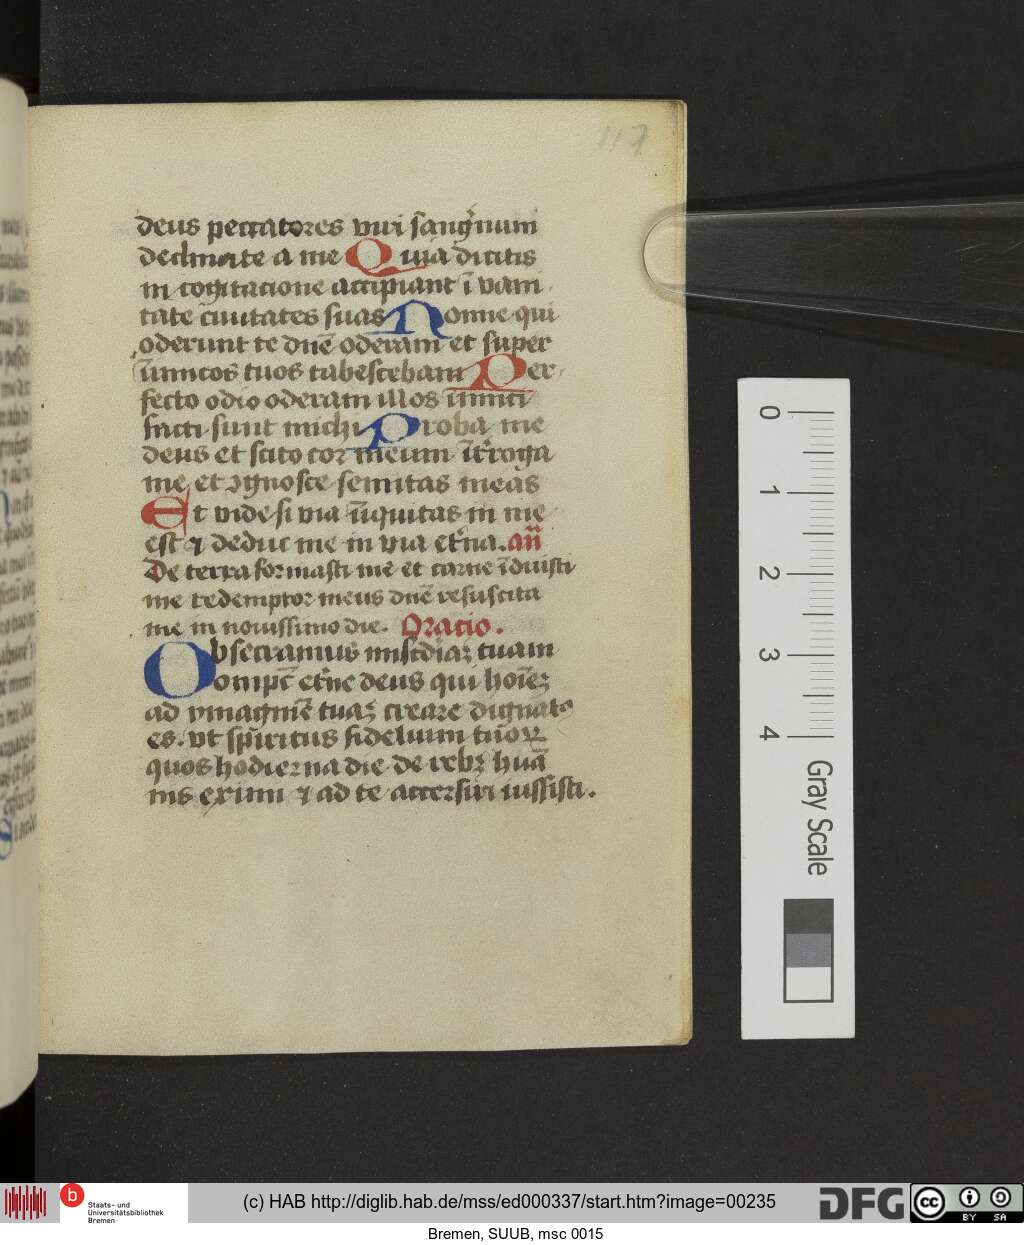 117
deus peccatores viri sangͥnum
declinate a me Quia dicitis
in cogitacione accipiant ī vani
tate ciuitates suas Nonne qui
oderunt te dn̄e oderam et super
īimicos tuos tabescebam Per
fecto odio oderam illos inimici
facti sunt michi Proba me
deus et scito cor meum īt͛roga
me et ꝯgnosce semitas meas
Et vide si via īiquitas in me
est ⁊ deduc me in via et͛na. an̄
De terra formasti me et carne īduisti
me redemptor meus dn̄e resuscita
me in nouissimo die. Oracio.
Obsecramus mīscdiaꝫ tuam
ompc̄ et͛ne deus qui hoīeꝫ
ad ymaginē tuaꝫ creare dignatꝰ
es. vt spiritus fideluim tuoꝝ
quos hodierna die de rebꝫ huā
nis eximi ⁊ ad te accersiri iussisti.
0
1
2
3
4
Gray Scale
b
Staats- und
Universitätsbibliothek
Bremen
(c) HAB http://diglib.hab.de/mss/ed000337/start.htm?image=00235
DFG
cc BY SA
Bremen, SUUB, msc 0015